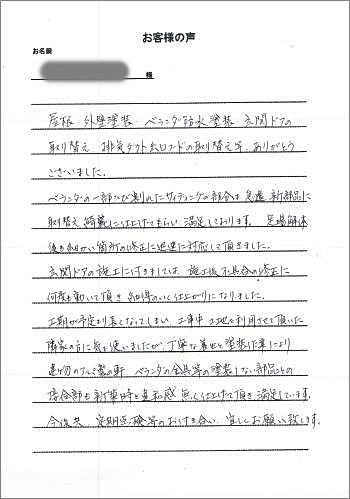 お客様の声
お名前
様
屋根・外壁塗装・ベランダ防水塗装・玄関ドアの
取り替え・排気ダクト出口フードの取り替え等、ありがとう
ございました。
ベランダの一部ひび割れたサイディングの部分は急遽、新部品に
取り替え、綺麗に仕上げてもらい、満足しております。足場解体
後も細かい箇所の修正に迅速に対応して頂きました。
玄関ドアの施工に付きましては、施工後不具合の修正に
何度も動いて頂き、納得のいく仕上がりになりました。
工期が予定より長くなってしまい、工事中、土地を利用させて頂いた
隣家の方に気を使いましたが、丁寧な養生と塗装作業により
建物のアルミ製の軒、ベランダの金具等の塗装しない部品との
接合部も新築時と違和感無く仕上げて頂き満足しています。
今後共、定期点検等のお付き合い、宜しくお願い致します。